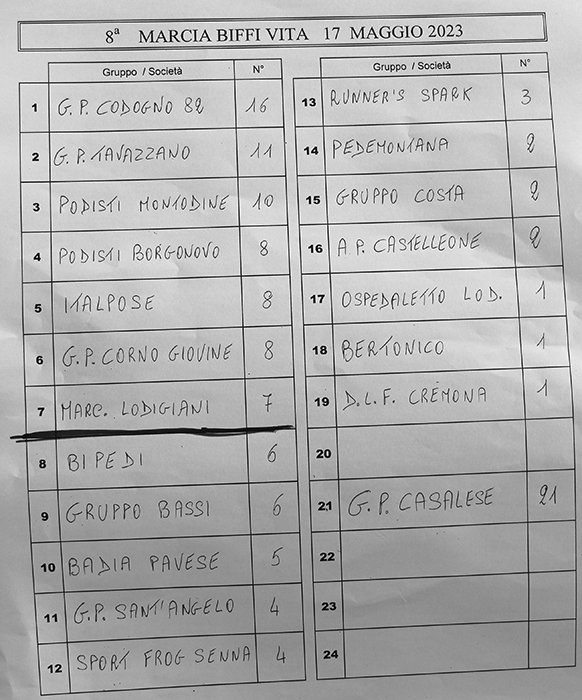 8ª MARCIA BIFFI VITA 17 MAGGIO 2023
Gruppo / Società N°
1 G.P. CODOGNO 82 16
2 G.P. TAVAZZANO 11
3 PODISTI MONTODINE 10
4 PODISTI BORGONOVO 8
5 ITALPOSE 8
6 G.P. CORNO GIOVINE 8
7 MARC. LODIGIANI 7
8 BIPEDI 6
9 GRUPPO BASSI 6
10 BADIA PAVESE 5
11 G.P. SANT'ANGELO 4
12 SPORT FROG SENNA 4
Gruppo / Società N°
13 RUNNER'S SPARK 3
14 PEDEMONTANA 2
15 GRUPPO COSTA 2
16 A.P. CASTELLEONE 2
17 OSPEDALETTO LOD. 1
18 BERTONICO 1
19 D.L.F. CREMONA 1
20
21 G.P. CASALESE 21
22
23
24